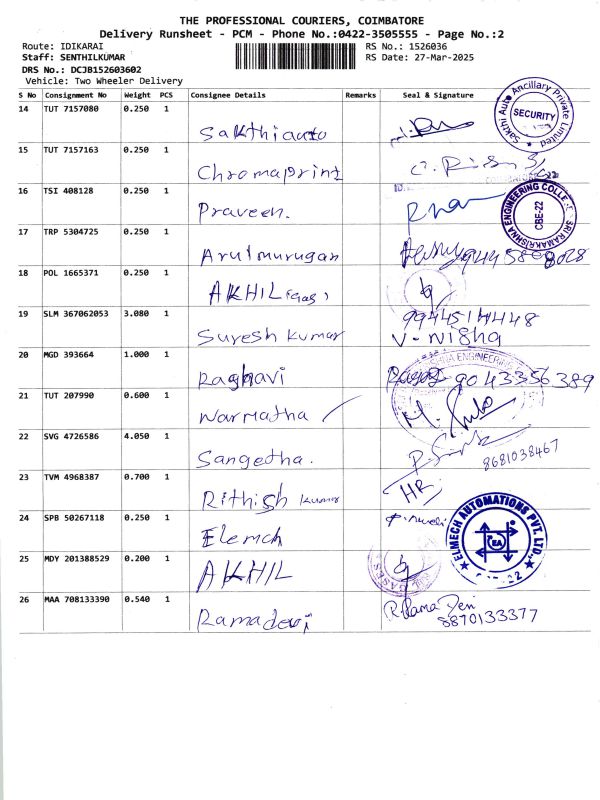 THE PROFESSIONAL COURIERS, COIMBATORE
Delivery Runsheet - PCM - Phone No.:0422-3505555 - Page No.:2
Route: IDIKARAI RS No.: 1526036
Staff: SENTHILKUMAR RS Date: 27-Mar-2025
DRS No.: DCJB152603602
Vehicle: Two Wheeler Delivery
S No Consignment No Weight PCS Consignee Details Remarks Seal & Signature
14 TUT 7157080 0.250 1 Sakthi auto
Sakthi Auto Ancillary Private Limited
SECURITY
15 TUT 7157163 0.250 1 Chromaprint
16 TSI 408128 0.250 1 Praveen.
SRI RAMAKRISHNA ENGINEERING COLLEGE
CBE-22
17 TRP 5304725 0.250 1 Arulmurugan
18 POL 1665371 0.250 1 AKHIL (Gas)
19 SLM 367062053 3.080 1 Suresh kumar V-Nisha
20 MGD 393664 1.000 1 Raghavi 9043356389
21 TUT 207990 0.600 1 Narmatha
22 SVG 4726586 4.050 1 Sangetha. 8681038467
23 TVM 4968387 0.700 1 Rithish kumar HR
24 SPB 50267118 0.250 1 Elemch
ELMECH AUTOMATIONS PVT. LTD.,
EA
25 MDY 201388529 0.200 1 AKHIL
26 MAA 708133390 0.540 1 Ramadevi R Rama Devi
8870133377